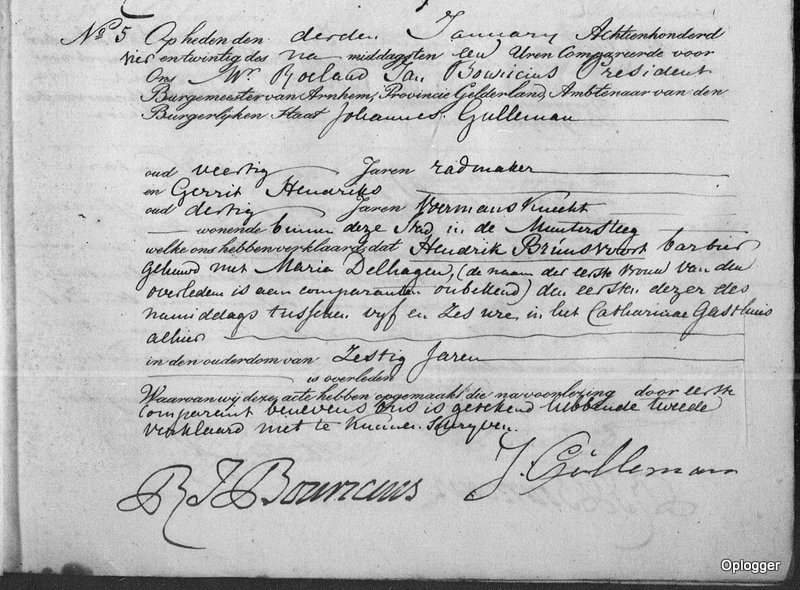 N° 5 Op heden den derden January Achtienhonderd
vier en twintig des na middags ten een Uren Compareerde voor
Ons Mr Roeland Jan Bouricius President
Burgemeester van Arnhem, Provincie Gelderland, Ambtenaar van den
Burgerlijken Staat Johannes Gulleman
oud veertig Jaren radmaker
en Gerrit Hendriks
oud dertig Jaren Voermans Knecht
wonende binnen deze Stad in de Muntersteeg
welke ons hebben verklaard, dat Hendrik Brunsvoort barbier
gehuwd met Maria Delhagen, (de naam der eerste vrouw van den
overledene is aan comparanten onbekend) den eersten dezer des
namiddags tusschen vyf en zes ure, in het Catharinae Gasthuis
alhier
in den ouderdom van Zestig Jaren
is overleden
Waarvan wij deze acte hebben opgemaakt die na voorlezing door eerste
Comparant benevens ons is getekend hebbende tweede
verklaard niet te kunnen schryven.
R J Bouricius J. Gülleman
Oplogger